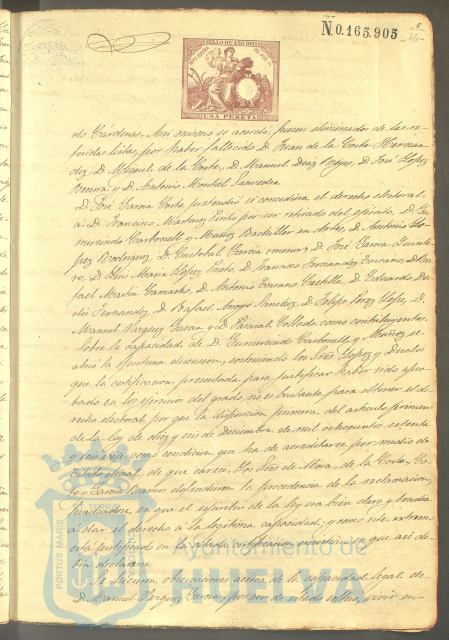 N.0.165.905
SELLO DE AÑO 1881
UNA PESETA
do Cárdenas. Así mismo se acordó: fueran eliminados de las re-
feridas listas, por haber fallecido D. Juan de la Corte Hernan-
dez, D. Miguel de la Corte, D. Manuel Diaz D. José Lopez
Becerra y D. Antonio Montiel Saavedra.
D. José Garcia Corte pretendió se concediera el derecho electoral
á D. Francisco Martinez Pinto por ser retirado del ejército, D. Gu-
mersindo Carbonell y Muñoz Bachiller en Artes, D. Antonio Lo-
pez Rodriguez, D. Cristobal Garcia (menor) D. José Garcia
ro, D. Luis Maria Lopez Prieto, D. Ignacio Fernandez Toscano, D. Ra-
fael Martin Camacho, D. Antonio Toscano Castilla, D. Eduardo Du-
clós Fernandez, D. Rafael Sanchez, D. Felipe Perez D.
Manuel Vazquez Garcia y D. Pascual Collado, como contribuyentes.
Sobre la capacidad de D. Gumersindo Carbonell y Muñoz se
abrió la oportuna discusion, sosteniendo los Sres. Lopez y Duclós
que la certificacion presentada para justificar haber sido apro-
bado en los ejercicios del grado, no es bastante para obtener el de-
recho electoral por que la disposicion primera del articulo primero
de la ley de diez y seis de Diciembre de mil ochocientos setenta
y seis exije como condicion que ha de acreditarse por medio de
título oficial, de que carece. Los Sres. de Mora, de la Corte,
y Garcia Ramos defendieron la procedencia de la reclamacion,
fundándose en que el espiritu de la ley era bien claro y tendia
á dar el derecho á la legitima capacidad, y como este extremo
está justificado en la citada certificacion, creian que asi de-
bia declararse.
Se hicieron observaciones acerca de la capacidad legal de
D. Manuel Vazquez Garcia, por ser de estado soltero, vivir en
PORTUS MARIS
Ayuntamiento de
HUELVA